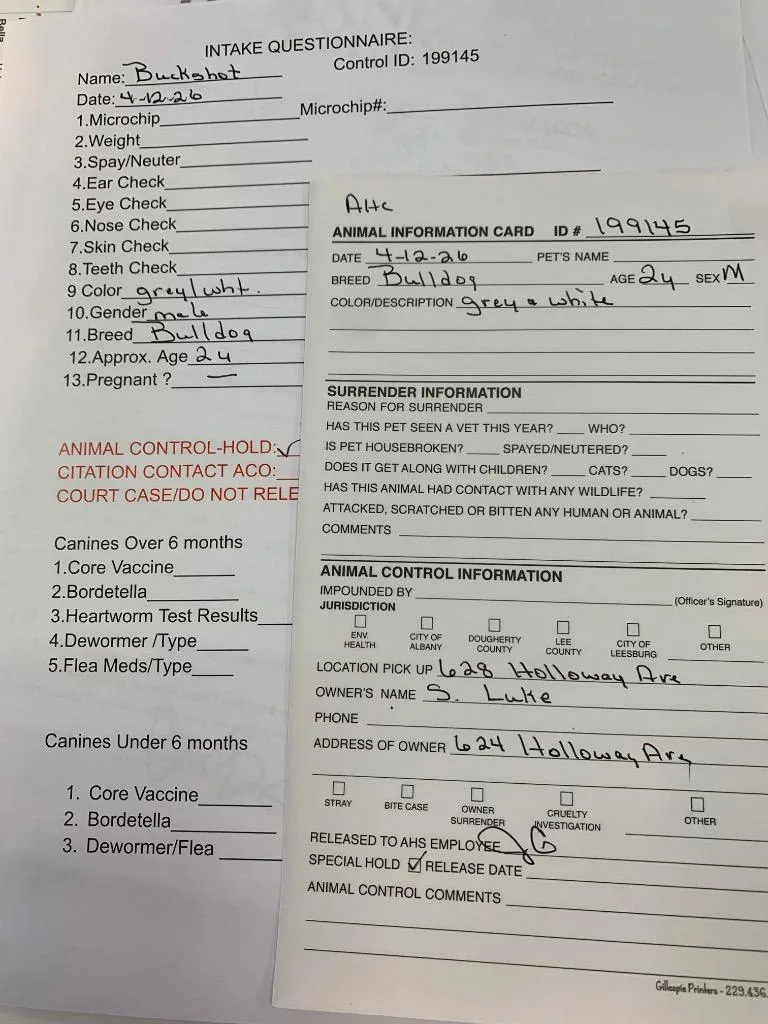 INTAKE QUESTIONNAIRE:
Name: Buckshot
Control ID: 199145
Date: 4-12-26
Microchip#:
1.Microchip
2.Weight
3.Spay/Neuter
4.Ear Check
5.Eye Check
6.Nose Check
7.Skin Check
8.Teeth Check
9 Color grey/wht.
10.Gender male
11.Breed Bulldog
12.Approx. Age 2y
13.Pregnant ? —
ANIMAL CONTROL-HOLD: ✓
CITATION CONTACT ACO:
COURT CASE/DO NOT RELE
Canines Over 6 months
1.Core Vaccine
2.Bordetella
3.Heartworm Test Results
4.Dewormer /Type
5.Flea Meds/Type
Canines Under 6 months
1. Core Vaccine
2. Bordetella
3. Dewormer/Flea
ANIMAL INFORMATION CARD ID # 199145
DATE 4-12-26 PET'S NAME
BREED Bulldog AGE 2y SEX M
COLOR/DESCRIPTION grey & white
SURRENDER INFORMATION
REASON FOR SURRENDER
HAS THIS PET SEEN A VET THIS YEAR? WHO?
IS PET HOUSEBROKEN? SPAYED/NEUTERED?
DOES IT GET ALONG WITH CHILDREN? CATS? DOGS?
HAS THIS ANIMAL HAD CONTACT WITH ANY WILDLIFE?
ATTACKED, SCRATCHED OR BITTEN ANY HUMAN OR ANIMAL?
COMMENTS
ANIMAL CONTROL INFORMATION
IMPOUNDED BY (Officer's Signature)
JURISDICTION
ENV. HEALTH
CITY OF ALBANY
DOUGHERTY COUNTY
LEE COUNTY
CITY OF LEESBURG
OTHER
LOCATION PICK UP 628 Holloway Ave
OWNER'S NAME S. Luke
PHONE
ADDRESS OF OWNER 624 Holloway Ave
STRAY
BITE CASE
OWNER SURRENDER
CRUELTY INVESTIGATION
OTHER
RELEASED TO AHS EMPLOYEE
SPECIAL HOLD ✓ RELEASE DATE
ANIMAL CONTROL COMMENTS
Gillespie Printers - 229.436.